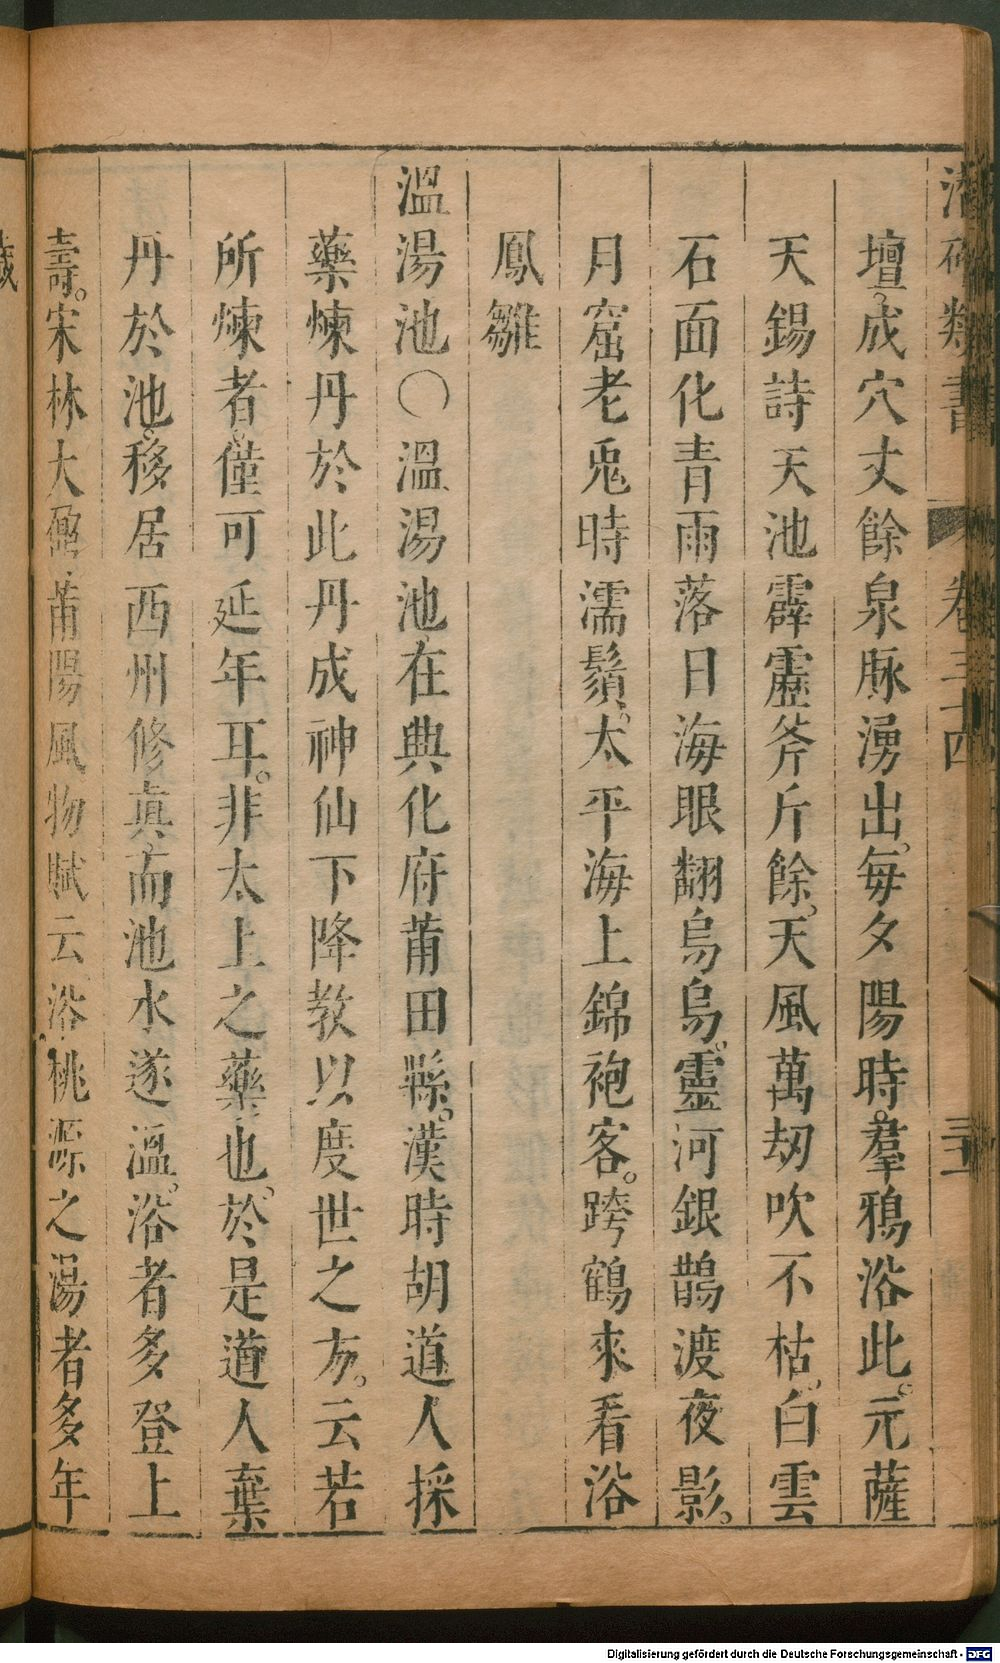 潛確類書 卷三十四 三五
壇。成穴丈餘泉脉湧出。每夕陽時。羣鴉浴此。元薩
天錫詩天池霹靂斧斤餘。天風萬刼吹不枯。白雲
石面化青雨落日海眼翻烏烏。靈河銀鵲渡夜影。
月窟老兎時濡鬚。太平海上錦袍客。跨鶴來看浴
鳳雛
溫湯池〇溫湯池在興化府莆田縣。漢時胡道人採
藥煉丹於此丹成神仙下降教以度世之方。云若
所煉者。僅可延年耳。非太上之藥也。於是道人棄
丹於池。移居西州修真。而池水遂溫。浴者多登上
壽。宋林大鼐莆陽風物賦云浴桃源之湯者多年
Digitalisierung gefördert durch die Deutsche Forschungsgemeinschaft - DFG